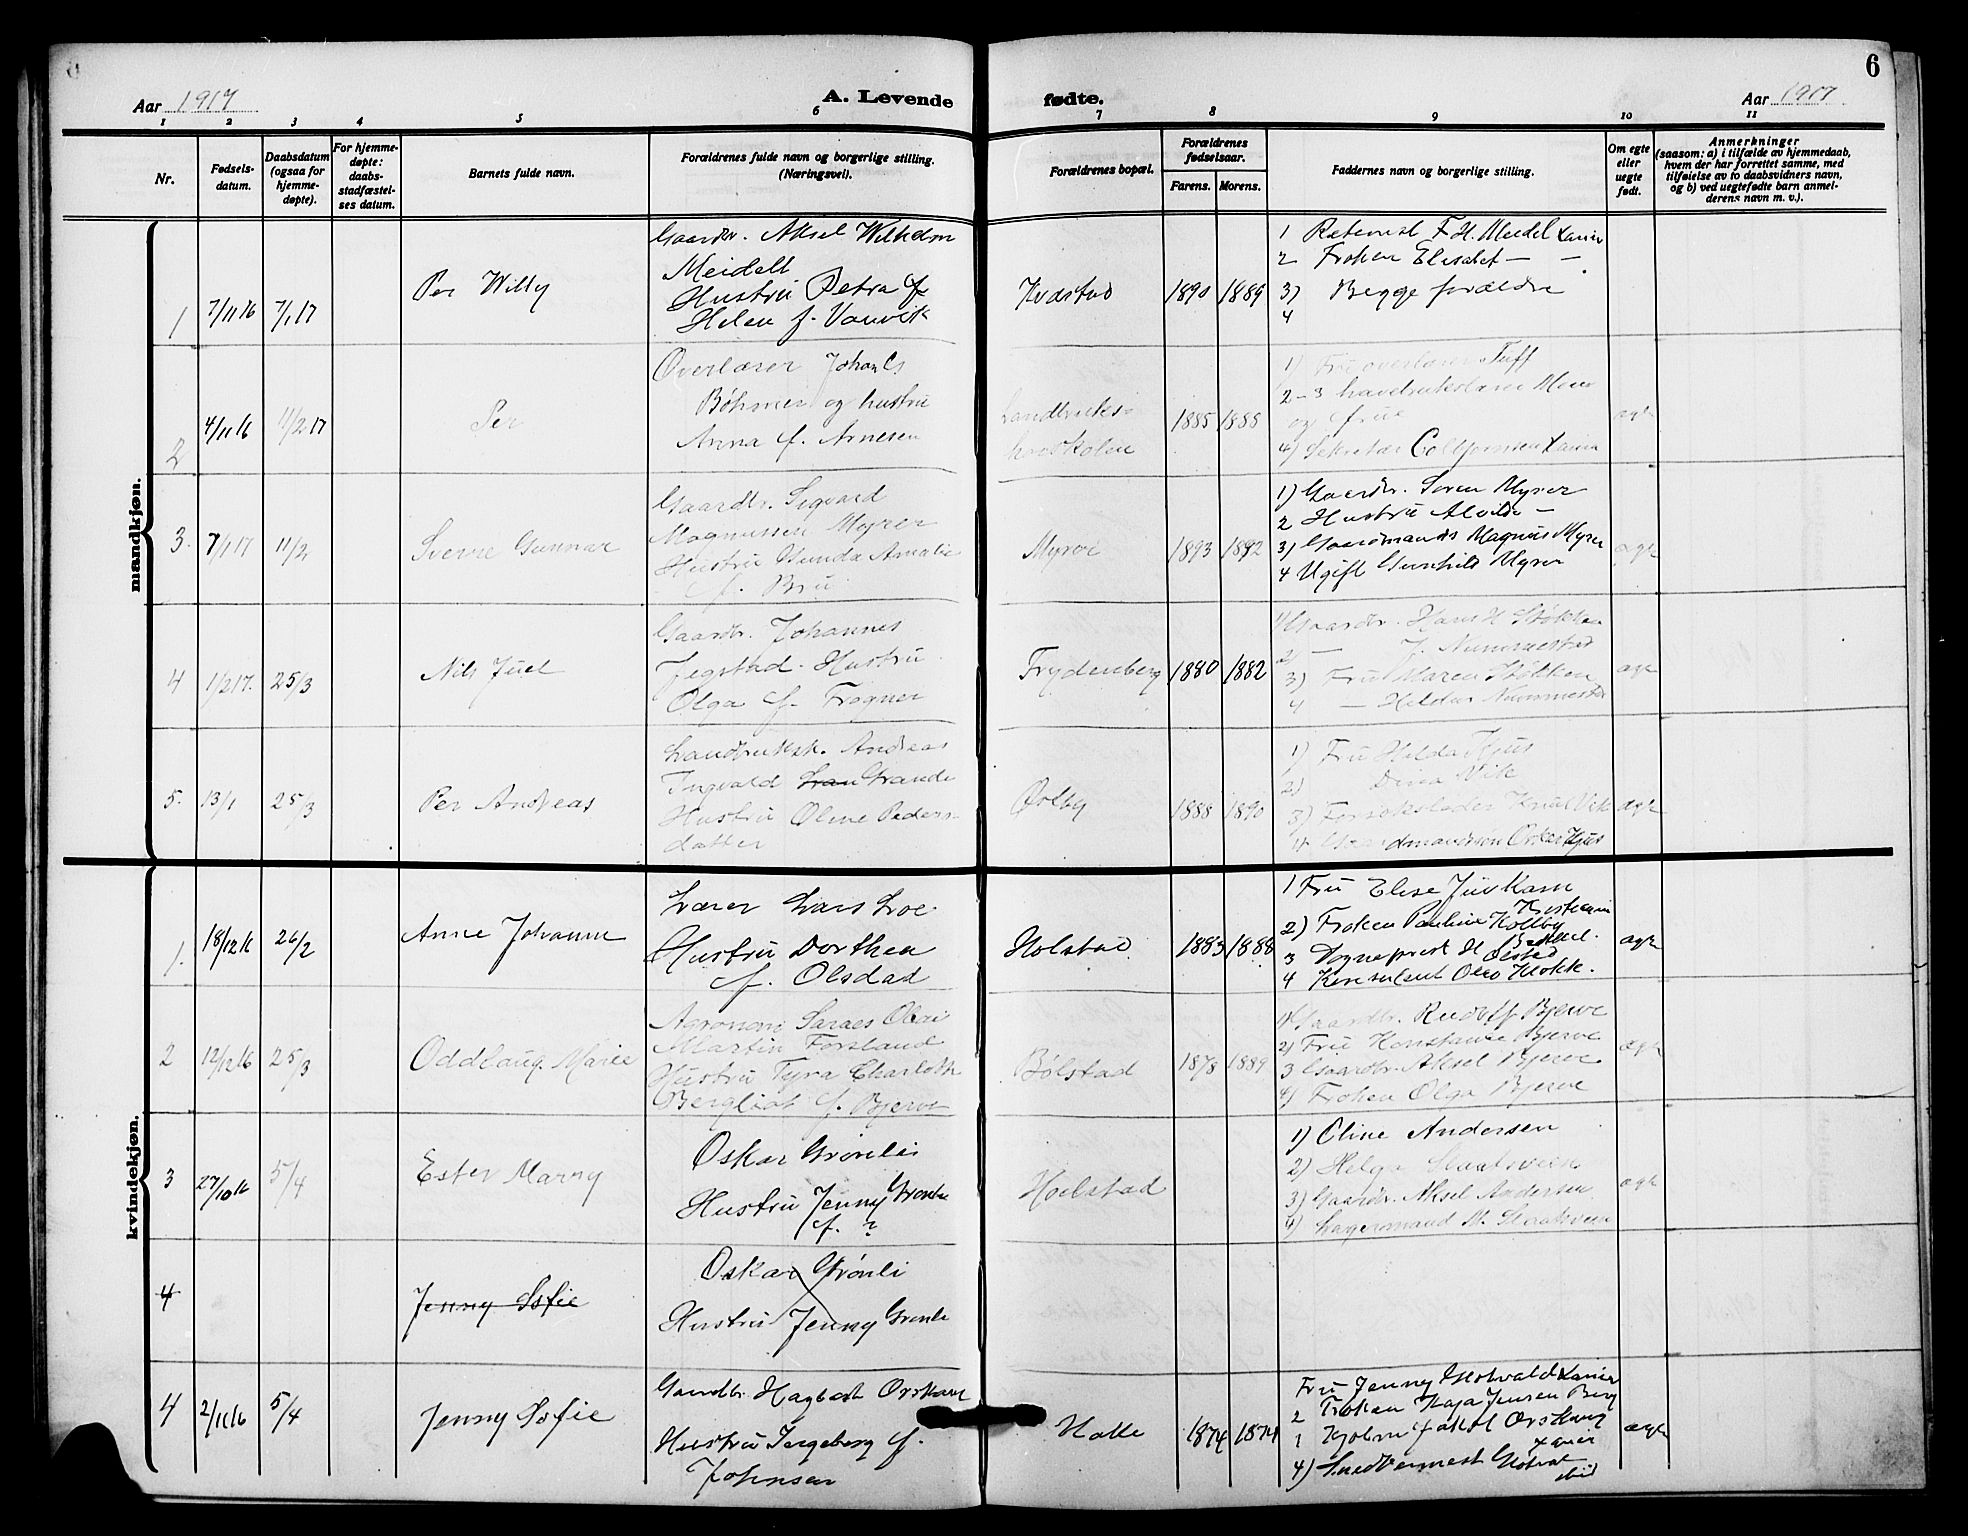 6
Aar 1917
A. Levende
fødte.
Aar 1917
1 2 3 4 5 6 7 8 9 10 11
Nr.
Fødsels-
datum.
Daabsdatum
(ogsaa for
hjemme-
døpte).
For hjemme-
døpte:
daabs-
stadfæstel-
ses datum.
Barnets fulde navn.
Forældrenes fulde navn og borgerlige stilling.
(Næringsvei).
Forældrenes bopæl.
Forældrenes
fødselsaar.
Farens. Morens.
Faddernes navn og borgerlige stilling.
Om egte
eller
uegte
født.
Anmerkninger
(saasom: a) i tilfælde av hjemmedaab,
hvem der har forrettet samme, med
tilføielse av to daabsvidners navn,
og b) ved uegtefødte barn anmel-
derens navn m. v.).
mandkjøn.
1 7/11 16 7/1 17
Per Willy
Gaardbr. Aksel Wilhelm
Meidell
Hustru Petra
Helen f. Vanvik
Kvæstad
1890 1889
1 F. H. Meidel
2 Frøken Elisabet — —
3) Begge forældre
4
2 4/11 16 11/2 17
Per
Overlærer Johan C.
Bøhmer og hustru
Anna f. Arnesen
Landbruks-
høiskolen
1885 1888
1) Fru overlærer Tuff
2-3 havebrukslærer Moen
og frue
4) Sekretær
egte
3. 7/1 17 11/2
Sverre Gunnar
Gaardbr. Sigvard
Magnussen Myrer
Hustru Gunda Amalie
f. Bru
Myrer
1893 1892
1) Gaardbr. Søren Myrer
2 Hustru Alvilde —
3) Gaardmands Magnus Myrer
4 Ugift Gunhild Myrer
egte
4 1/2 17. 25/3
Nils Juel
Gaardbr. Johannes
Jegstad. Hustru
Olga f. Frogner
Frydenberg
1880 1882
1) Gaardbr. Hans H Støkken
2) — J. Nummestad
3) Fru Maren Støkken
4 — Hildur Nummestad
egte
5. 13/1 25/3
Per Andreas
Landbruksk. Andreas
Ingvald Grande
Hustru Oline Peders-
datter
Ørlby
1888 1890
1) Fru Hilda Hjus
2) Dina Vik
3) Forsøksleder Knut Vik
4 Gaardmandssøn Oskar Hjus
egte
kvindekjøn.
1. 18/12 16 26/2
Anne Johanne
Lærer Lars Loe
Hustru Dorthea
f. Olsdad
Holstad
1883 1888
1 Fru Elise
Kristiania
2) Frøken Pauline Kolby
3 Sogneprest H Olstad
4 Konsulent Olav Klokk.
egte
2 12/12 16 25/3
Oddlaug Marie
Agronom
Martin Forsland
Hustru Tyra Charlotte
Bergliot f. Bjerve
Bølstad
1878 1889
1) Gaardbr. Rudolf Bjerve
2) Fru Konstanse Bjerve
3 Gaardbr. Aksel Bjerve
4) Frøken Olga Bjerve
egte
3 27/10 16 5/4
Ester Marny
Oskar Grønli
Hustru Jenny Grønli
f. ?
Holstad
1) Oline Andersen
2) Helga
3) Gaardbr. Aksel Andersen
4) Lagermand
egte
4
Jenny Sofie
Oskar Grønli
Hustru Jenny Grønli
4 2/11 16 5/4
Jenny Sofie
Gaardbr. Hagbart Orskaug
Hustru Ingeborg f.
Johnsen
Holle
1874 1874
Fru Jenny
2 Frøken Kaja Jensen Berg
1 Hjalm Jakob Orskaug
4)
egte